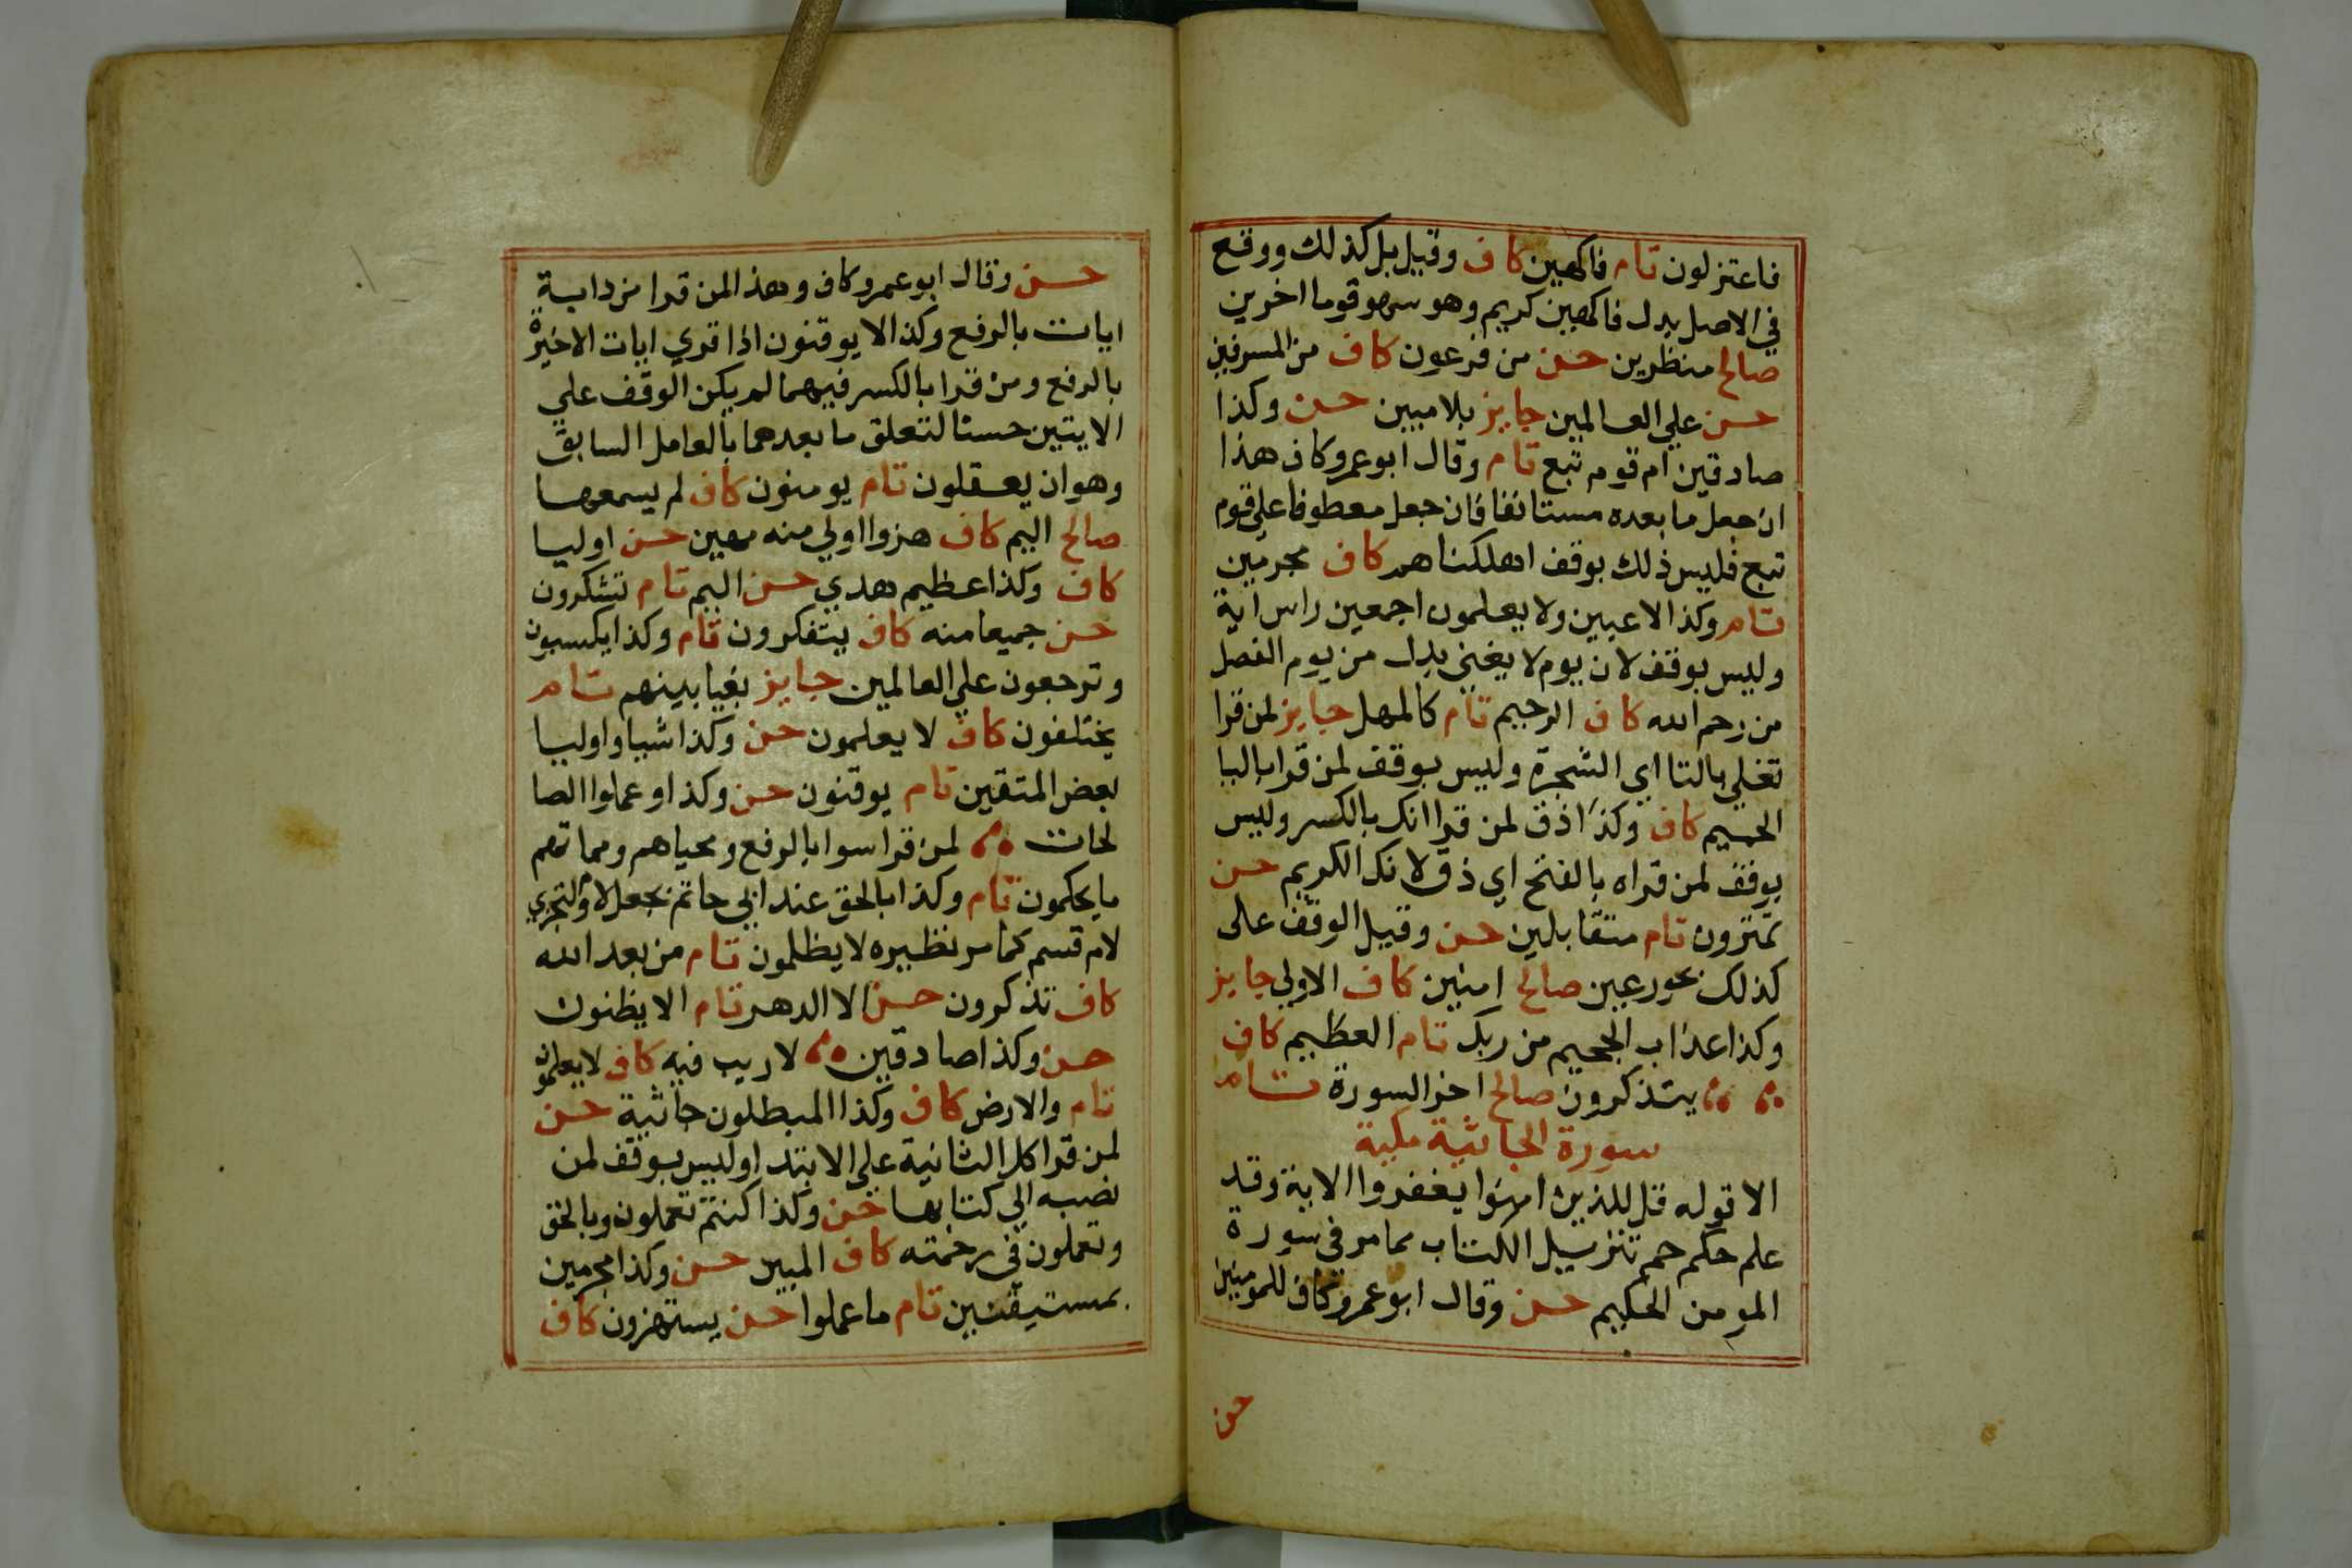 فاعتزلون تام فاكهين كاف وقيل بل كذلك ووقع
في الاصل بدل فاكهين كريم وهو سهو قوما اخرين
صالح منظرين حسن من فرعون كاف من المسرفين
حسن علي العالمين جايز بلا مبين حسن وكذا
صادقين ام قوم تبع تام وقال ابو عمرو كاف هذا
ان جعل ما بعده مستانفا فان جعل معطوفا علي قوم
تبع فليس ذلك بوقف اهلكناهم كاف مجرمين
تام وكذا لاعبين ولا يعلمون اجمعين راس اية
وليس بوقف لان يوم لا يغني بدل من يوم الفصل
من رحم الله كاف الرحيم تام كالمهل جايز لمن قرا
تغلي بالتا اي الشجرة وليس بوقف لمن قرا باليا
الحميم كاف وكذا ذق لمن قرا انك بالكسر وليس
بوقف لمن قراه بالفتح اي ذق لانك الكريم حسن
تمترون تام متقابلين حسن وقيل الوقف على
كذلك بحور عين صالح امنين كاف الاولي جايز
وكذا عذاب الجحيم من ربك تام العظيم كاف
يتذكرون صالح اخر السورة تام
سورة الجاثية مكية
الا قوله قل للذين امنوا يغفروا الاية وقد
علم حكم حم تنزيل الكتاب مما مر في سورة
المومن الحكيم حسن وقال ابو عمرو كاف للمومنين
حسن
حسن وقال ابو عمرو كاف وهذا لمن قرا من دابة
ايات بالرفع وكذا لا يوقنون اذا قري ايات الاخيرة
بالرفع ومن قرا بالكسر فيهما لم يكن الوقف علي
الايتين حسنا لتعلق ما بعدهما بالعامل السابق
وهو ان يعقلون تام يومنون كاف لم يسمعها
صالح اليم كاف هزوا اولي منه مهين حسن اوليا
كاف وكذا عظيم هدي حسن اليم تام تشكرون
حسن جميعا منه كاف يتفكرون تام وكذا يكسبون
وترجعون علي العالمين جايز بغيا بينهم تام
يختلفون كاف لا يعلمون حسن وكذا شيا واوليا
بعض المتقين تام يوقنون حسن وكذا وعملوا الصا
لحات لمن قرا سوا بالرفع ومحياهم ومماتهم
ما يحكمون تام وكذا بالحق عند ابي حاتم بجعل لام ولتجزي
لام قسم كما مر نظيره لا يظلمون تام من بعد الله
كاف تذكرون حسن الا الدهر تام الا يظنون
حسن وكذا صادقين لا ريب فيه كاف لا يعلمون
تام والارض كاف وكذا المبطلون جاثية حسن
لمن قرا كل الثانية علي الابتدا وليس بوقف لمن
نصبه الي كتابها حسن وكذا كنتم تعملون وبالحق
وتعملون في رحمته كاف المبين حسن وكذا مجرمين
بمستيقنين تام ما عملوا حسن يستهزون كاف